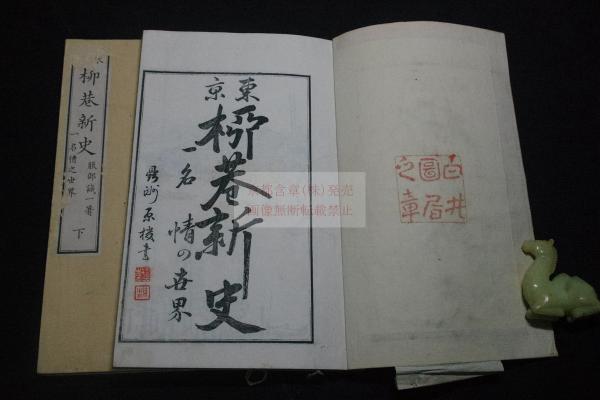 柳巷新史
服部誠一著
一名情之世界
下
東京
柳巷新史
一名 情の世界
白井
圖居
之章
京都含章(株)発売
画像無断転載禁止